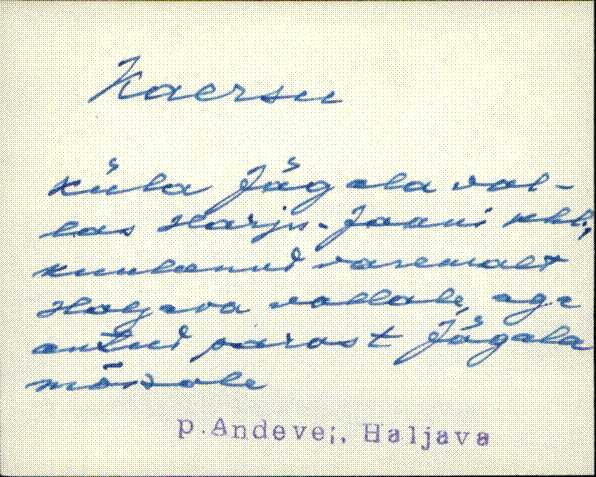 Kaersu
küla Jägala val-
las Harju-Jaani khk,
kuulunud varemalt
Haljava vallale, aga
antud pärast Jägala
mõisale
p.Andevei, Haljava